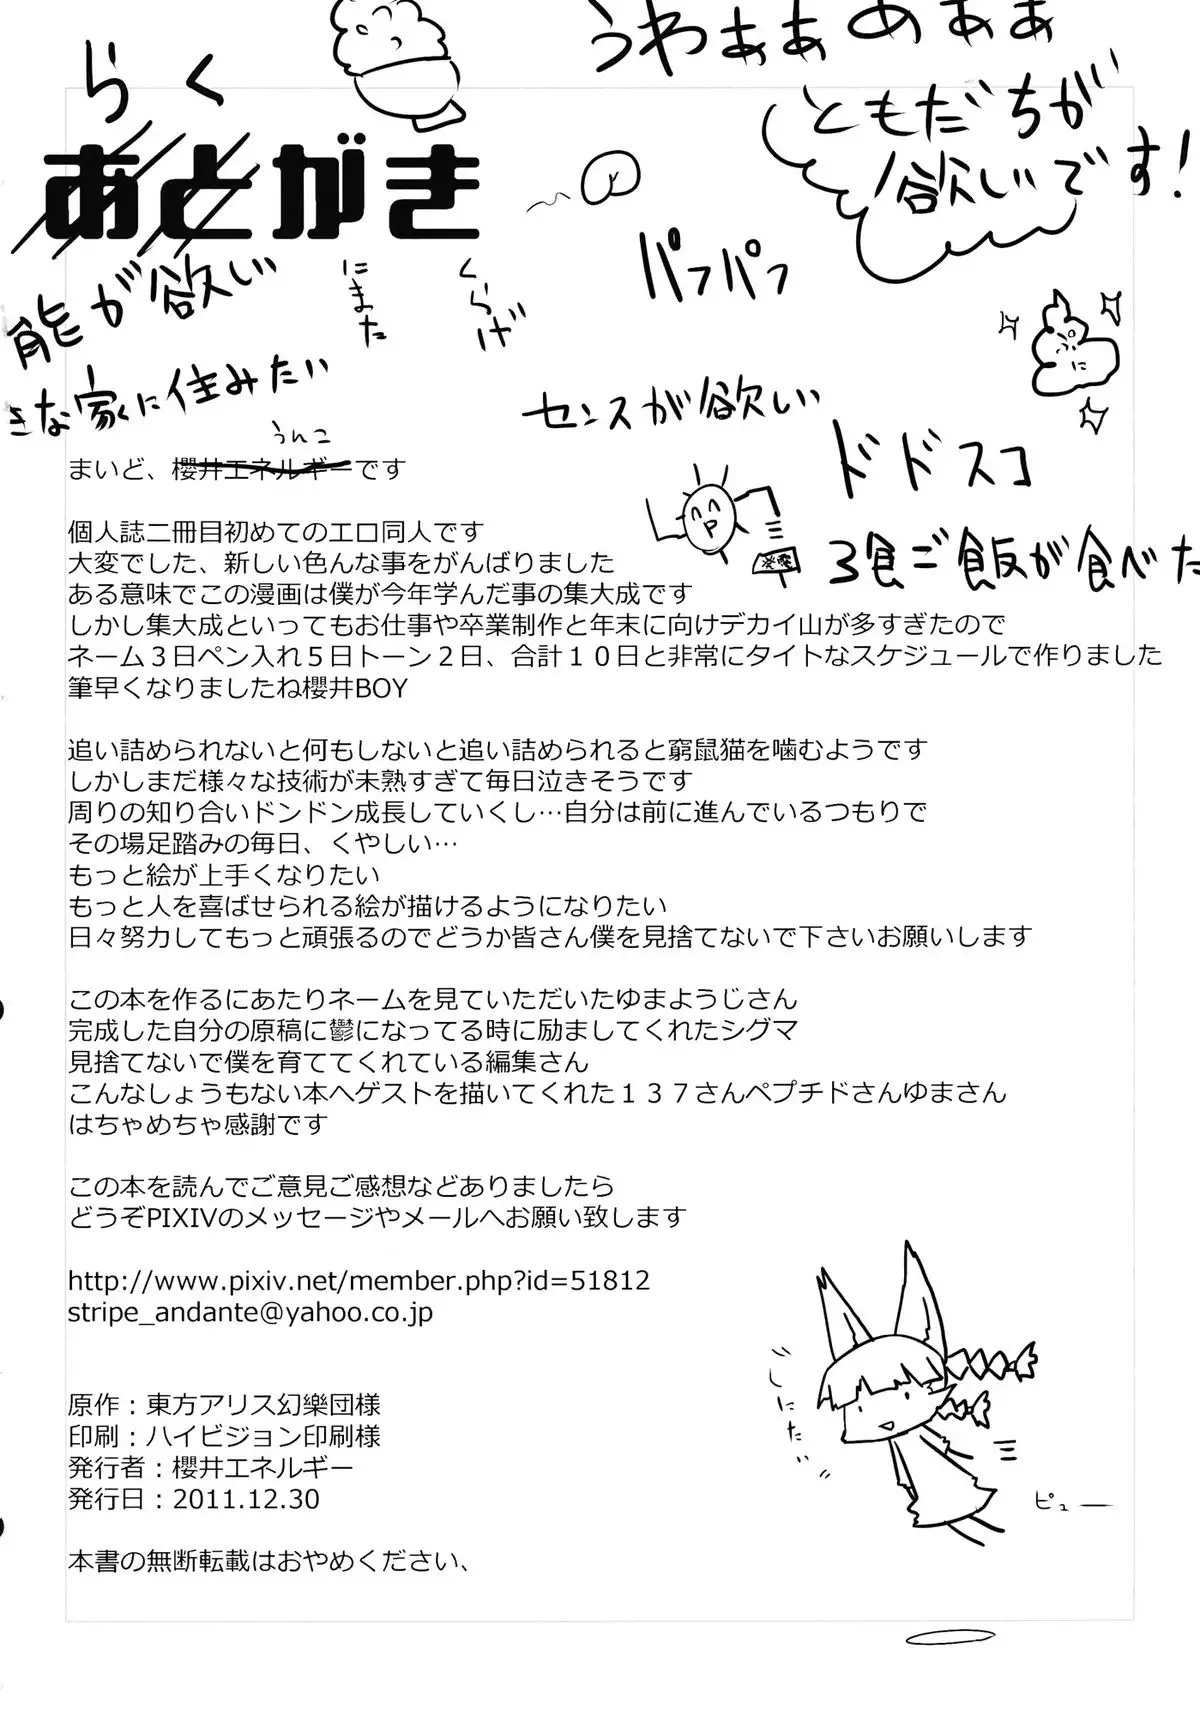 うわぁぁぁぁぁ
らく
ともだちが
欲しいです！
あとがき
パフパフ
能が欲しい
にまた
くらげ
うんこ
きな家に住みたい
センスが欲しい
ドドスコ
発電
3食ご飯が食べた
うんこ
まいど、櫻井エネルギーです
個人誌二冊目初めてのエロ同人です
大変でした、新しい色んな事をがんばりました
ある意味でこの漫画は僕が今年学んだ事の集大成です
しかし集大成といってもお仕事や卒業制作と年末に向けデカイ山が多すぎたので
ネーム３日ペン入れ５日トーン２日、合計１０日と非常にタイトなスケジュールで作りました
筆早くなりましたね櫻井BOY
追い詰められないと何もしないと追い詰められると窮鼠猫を噛むようです
しかしまだ様々な技術が未熟すぎて毎日泣きそうです
周りの知り合いドンドン成長していくし…自分は前に進んでいるつもりで
その場足踏みの毎日、くやしい…
もっと絵が上手くなりたい
もっと人を喜ばせられる絵が描けるようになりたい
日々努力してもっと頑張るのでどうか皆さん僕を見捨てないで下さいお願いします
この本を作るにあたりネームを見ていただいたゆまようじさん
完成した自分の原稿に鬱になってる時に励ましてくれたシグマ
見捨てないで僕を育ててくれている編集さん
こんなしょうもない本へゲストを描いてくれた１３７さんペプチドさんゆまさん
はちゃめちゃ感謝です
この本を読んでご意見ご感想などありましたら
どうぞPIXIVのメッセージやメールへお願い致します
http://www.pixiv.net/member.php?id=51812
stripe_andante@yahoo.co.jp
しにたい
ピュー
原作：東方アリス幻樂団様
印刷：ハイビジョン印刷様
発行者：櫻井エネルギー
発行日：2011.12.30
本書の無断転載はおやめください、